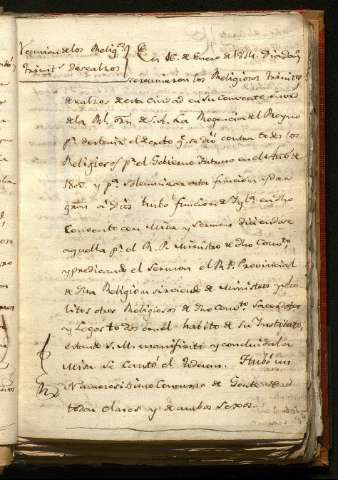 Reunion de los Relig.s
Trinit.s Descalzos
En 16. de Enero de 1814. Domin.
se reunieron los Religiosos Trinitos
descalzos de esta Ciudad en su Convento
de la Rl. orn. de S. A. la Regencia del Reyno
p.a destruir el q. se dió contra todos los
Religiosos p.r el Gobierno Intruso en el Año de
y p.a solemnizar esta funcion y dar
gras. a Dios tubo funcion de Igl.a en dho
Convento con Misa y Sermon diciendose
aquella p.r el R. P. Ministro de dho Conv.to
y predicando el Sermon el R. P. Provincial
de dha Religion sirviendo de Ministros y aco
litos otros Religiosos de dho Conv.to Sacerdotes
y Legos todos con el habito de su Instituto,
estando S. M. manifiesto y concluida la
Misa se cantó el Tedeum. Hubo un
numerosisimo Concurso de Gente de
todas clases y de ambos Sexos.